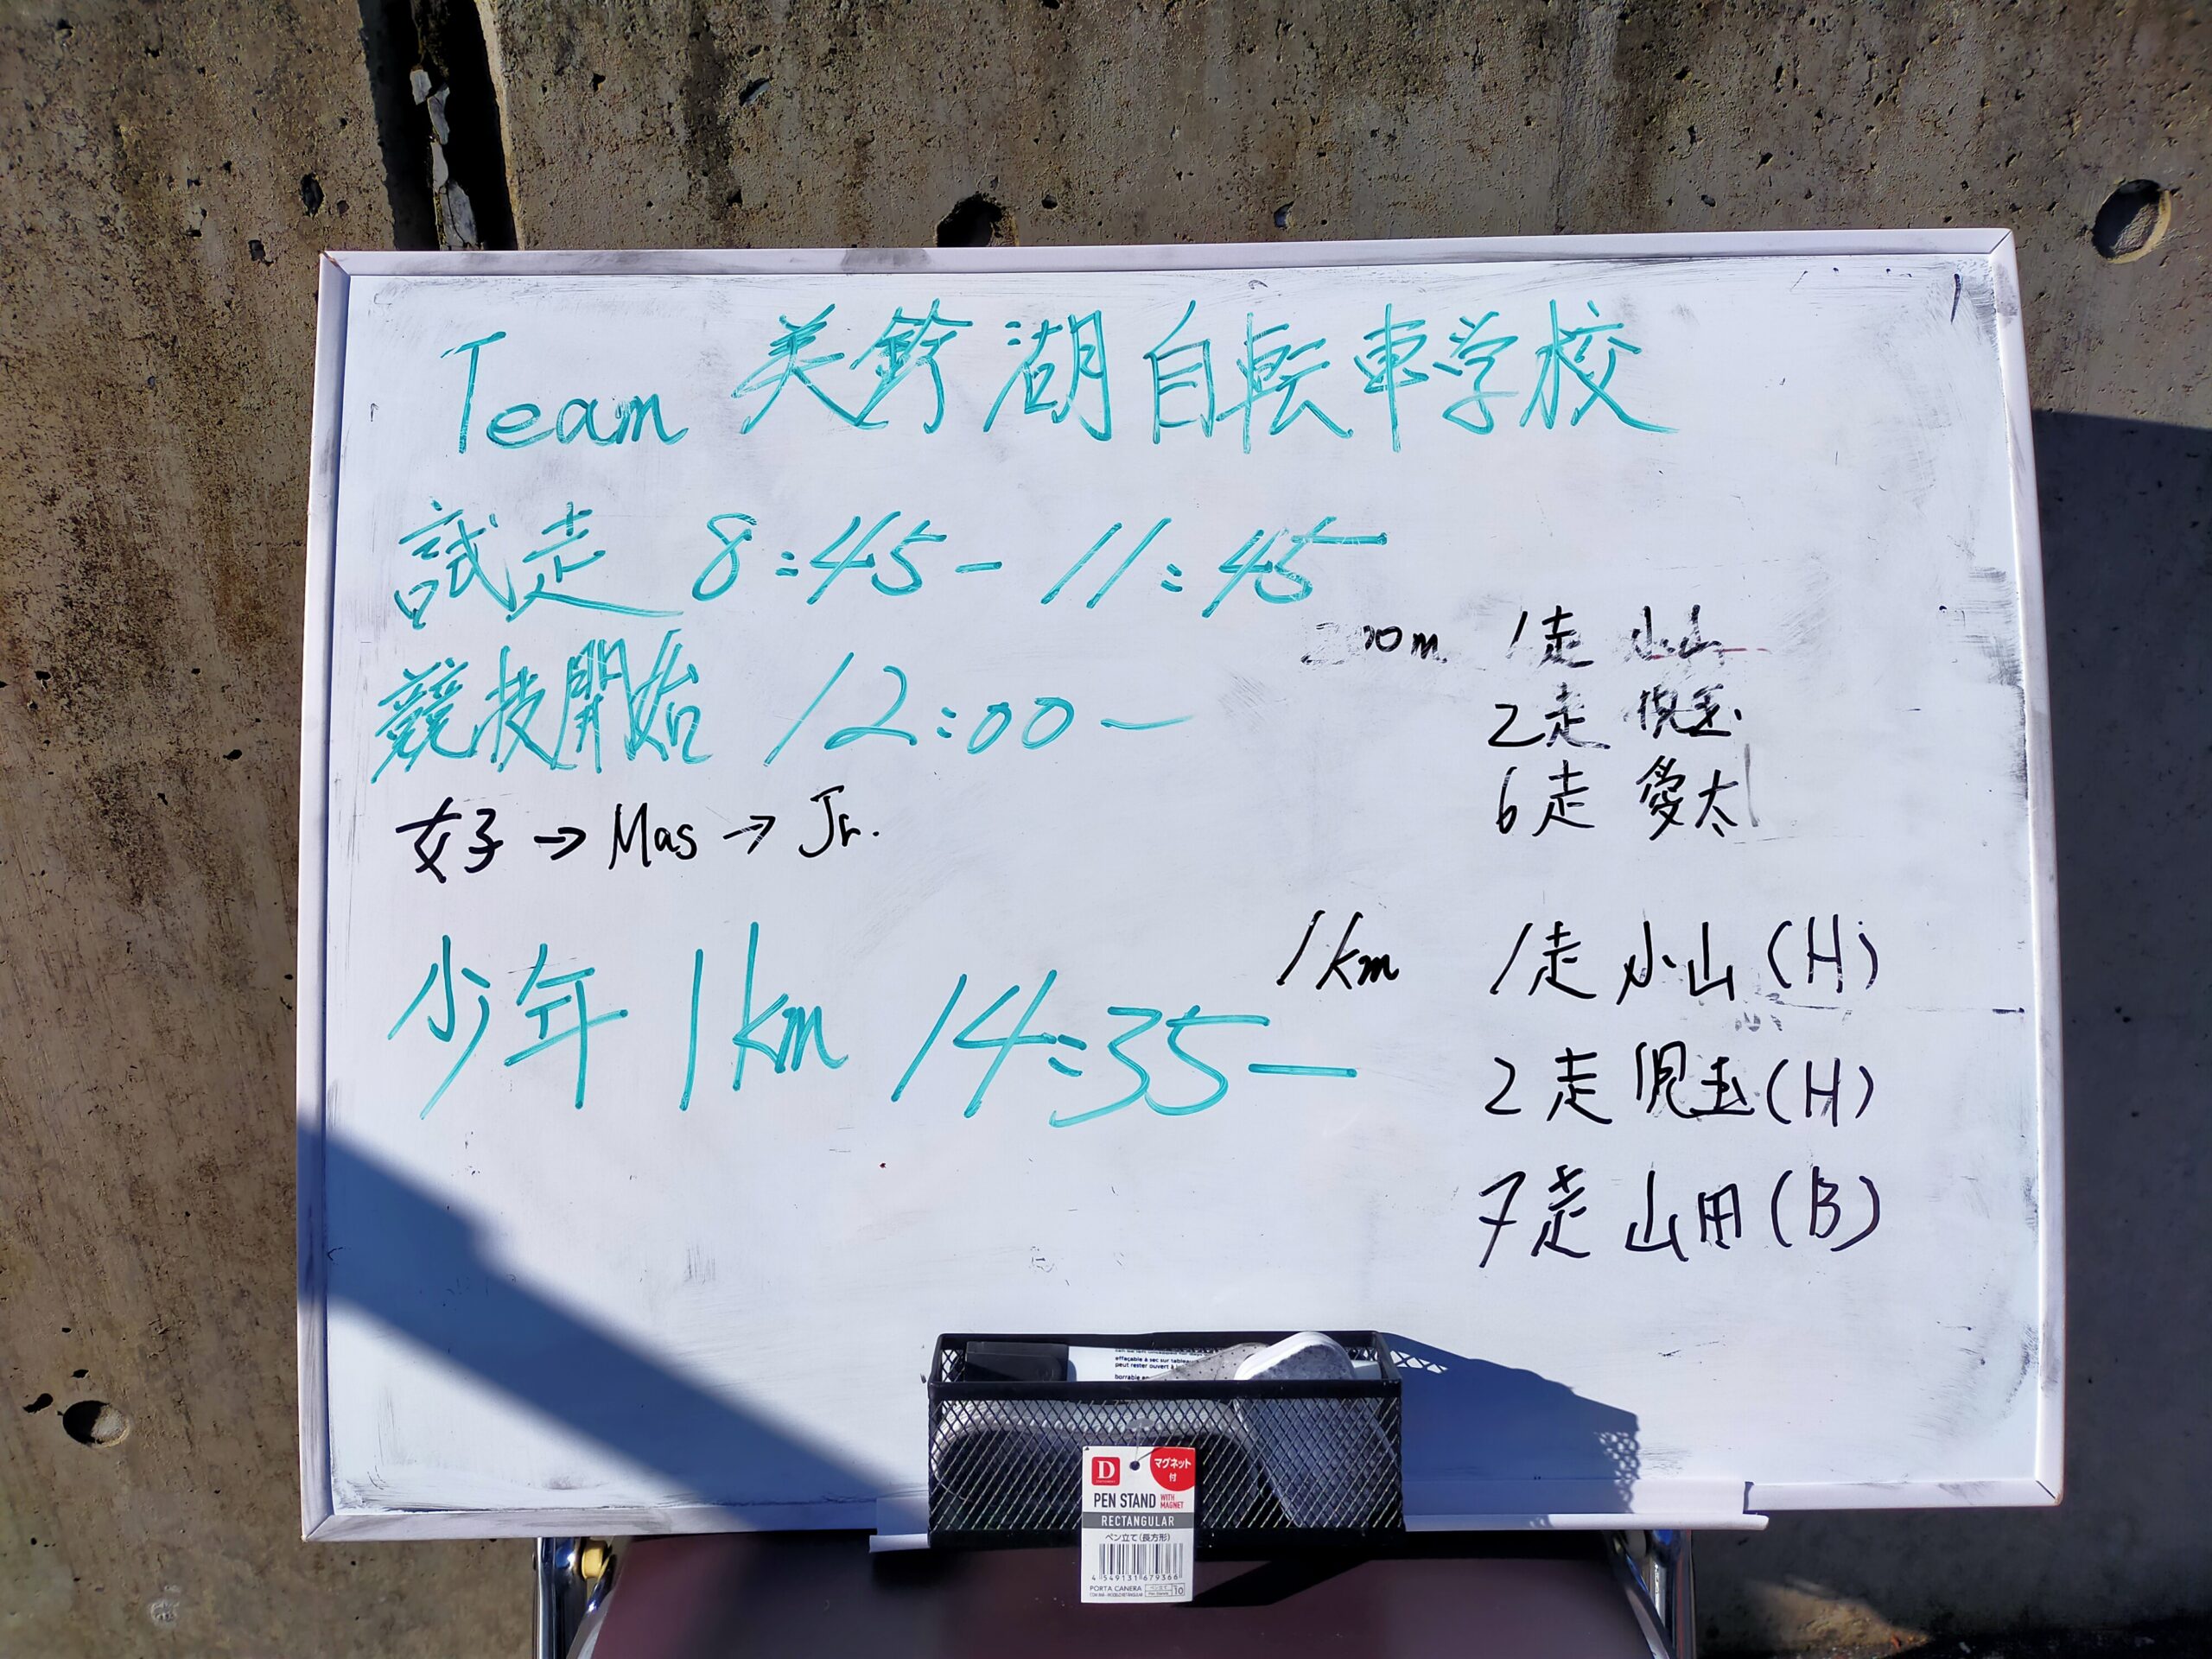 Team 美鈴湖自転車学校
試走 8:45 - 11:45
競技開始 12:00 —
女子 → Mas → Jr.
少年 1km 14:35 —
200m 1走 小山
2走 児玉
6走 愛太
1km 1走 小山 (H)
2走 児玉 (H)
7走 山田 (B)
effaçable à sec sur tableau
peut rester ouvert à
borrable en
D
マグネット
付
PEN STAND WITH MAGNET
RECTANGULAR
ペン立て(長方形)
4 549131 679366
PORTA CANERA
10